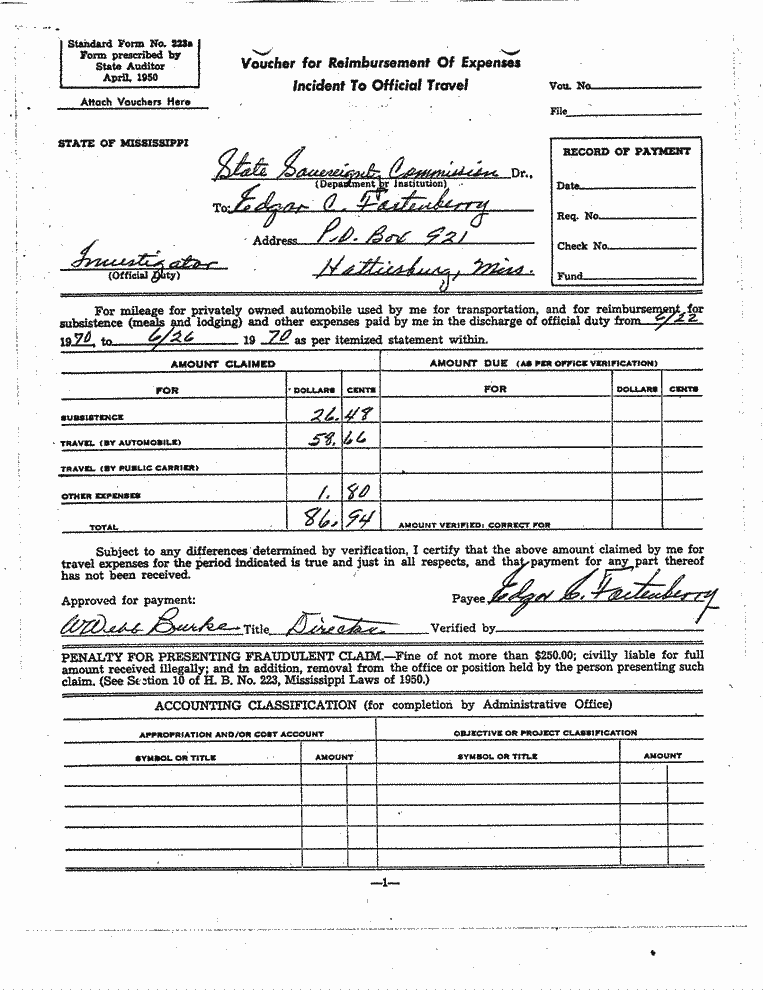 Standard Form No. 223a
Form prescribed by
State Auditor
April, 1950
Attach Vouchers Here
Voucher for Reimbursement Of Expenses
Incident To Official Travel
Vou. No.
File
STATE OF MISSISSIPPI
State Sovereignty Commission Dr.,
(Department or Institution)
To: Edgar C. Fortenberry
Address P.O. Box 921
Investigator
(Official Duty)
Hattiesburg, Miss.
RECORD OF PAYMENT
Date
Req. No.
Check No.
Fund
For mileage for privately owned automobile used by me for transportation, and for reimbursement for
subsistence (meals and lodging) and other expenses paid by me in the discharge of official duty from 6/22
1970, to 6/26 1970 as per itemized statement within.
AMOUNT CLAIMED AMOUNT DUE (AS PER OFFICE VERIFICATION)
FOR DOLLARS CENTS FOR DOLLARS CENTS
SUBSISTENCE 26.48
TRAVEL (BY AUTOMOBILE) 58.66
TRAVEL (BY PUBLIC CARRIER)
OTHER EXPENSES 1.80
TOTAL 86.94 AMOUNT VERIFIED: CORRECT FOR
Subject to any differences determined by verification, I certify that the above amount claimed by me for
travel expenses for the period indicated is true and just in all respects, and that payment for any part thereof
has not been received.
Approved for payment: Payee Edgar C. Fortenberry
W Webb Burke Title Director Verified by
PENALTY FOR PRESENTING FRAUDULENT CLAIM.—Fine of not more than $250.00; civilly liable for full
amount received illegally; and in addition, removal from the office or position held by the person presenting such
claim. (See Section 10 of H. B. No. 223, Mississippi Laws of 1950.)
ACCOUNTING CLASSIFICATION (for completion by Administrative Office)
APPROPRIATION AND/OR COST ACCOUNT OBJECTIVE OR PROJECT CLASSIFICATION
SYMBOL OR TITLE AMOUNT SYMBOL OR TITLE AMOUNT
—1—